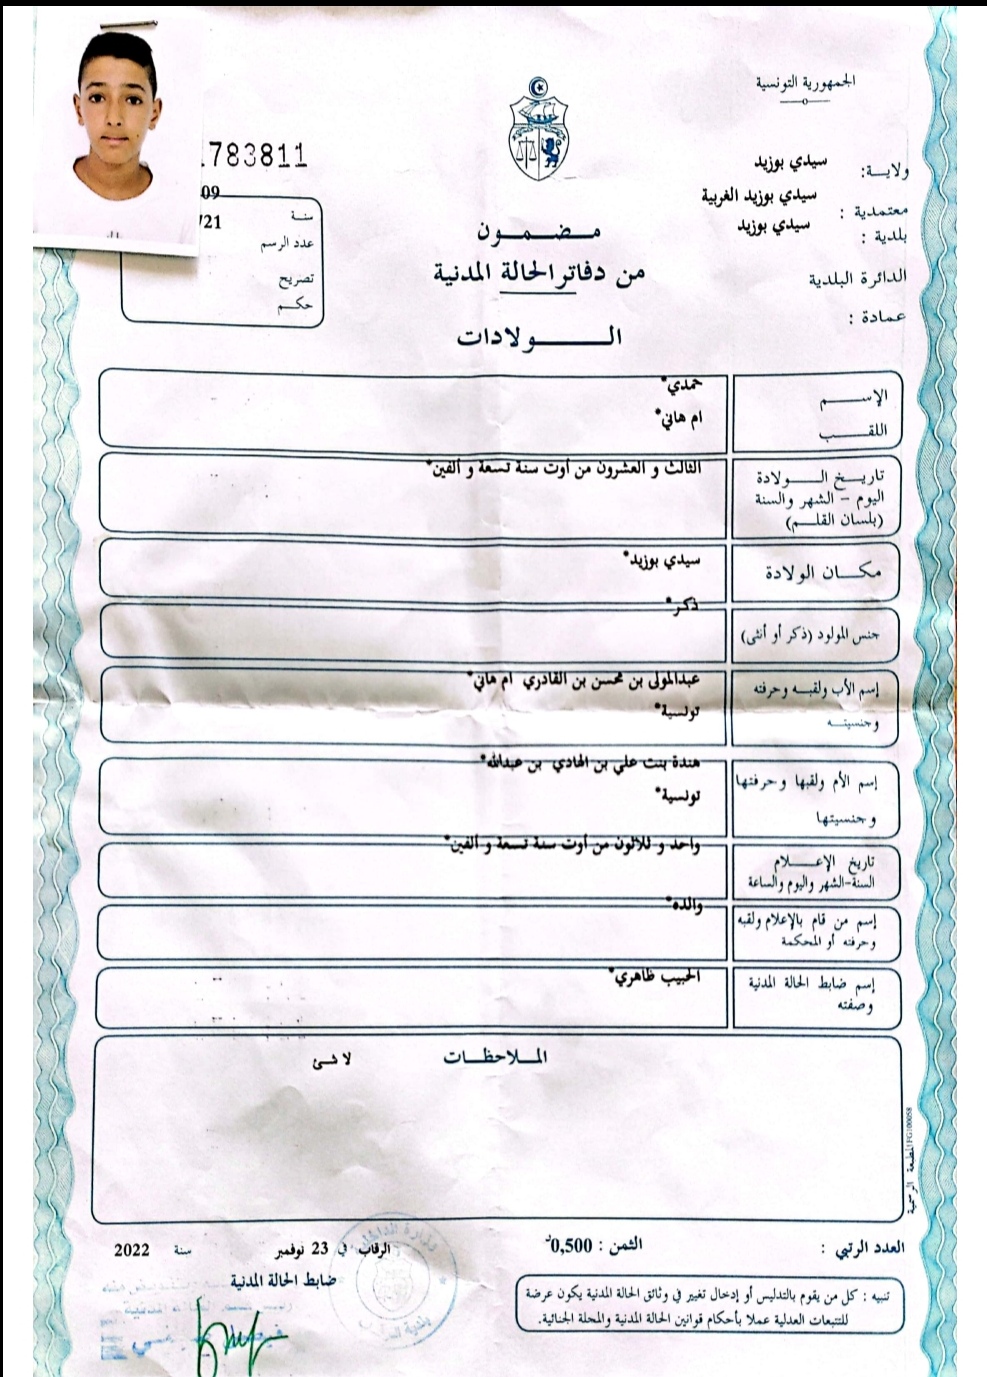 الجمهورية التونسية
783811
ولايـة: سيدي بوزيد
معتمدية : سيدي بوزيد الغربية
بلدية : سيدي بوزيد
الدائرة البلدية
عمادة :
09
سنـة
/21
عدد الرسم
تصريح
حكـم
مـضـمـــون
من دفاتر الحالة المدنية
الـــــــولادات
الإســـــم حمدي*
اللقـــب ام هاني*
تاريــخ الــــولادة
اليوم - الشهر والسنة
(بلسان القلـــم)
الثالث و العشرون من أوت سنة تسعة و ألفين*
مكـــان الولادة سيدي بوزيد*
جنس المولود (ذكر أو أنثى) ذكر*
إسم الأب ولقبــه وحرفته
وجنسيتــه
عبدالمولى بن محسن بن القادري ام هاني*
تونسية*
إسم الأم ولقبها وحرفتها
وجنسيتها
هندة بنت علي بن الهادي بن عبدالله*
تونسية*
تاريخ الإعـــــلام
السنة-الشهر واليوم والساعة
واحد و ثلاثون من أوت سنة تسعة و ألفين*
إسم من قام بالإعلام ولقبه
وحرفته أو المحكمة
والده*
إسم ضابط الحالة المدنية
وصفته
الحبيب ظاهري*
المــلاحظـــات
لا شئ
المطبعة الرسمية
العدد الرتبي :
الثمن : 0,500د
الرقاب في 23 نوفمبر سنة 2022
ضابط الحالة المدنية
تنبيه : كل من يقوم بالتدليس أو إدخال تغيير في وثائق الحالة المدنية يكون عرضة
للتتبعات العدلية عملا بأحكام قوانين الحالة المدنية والمجلة الجنائية.
وزارة الداخلية